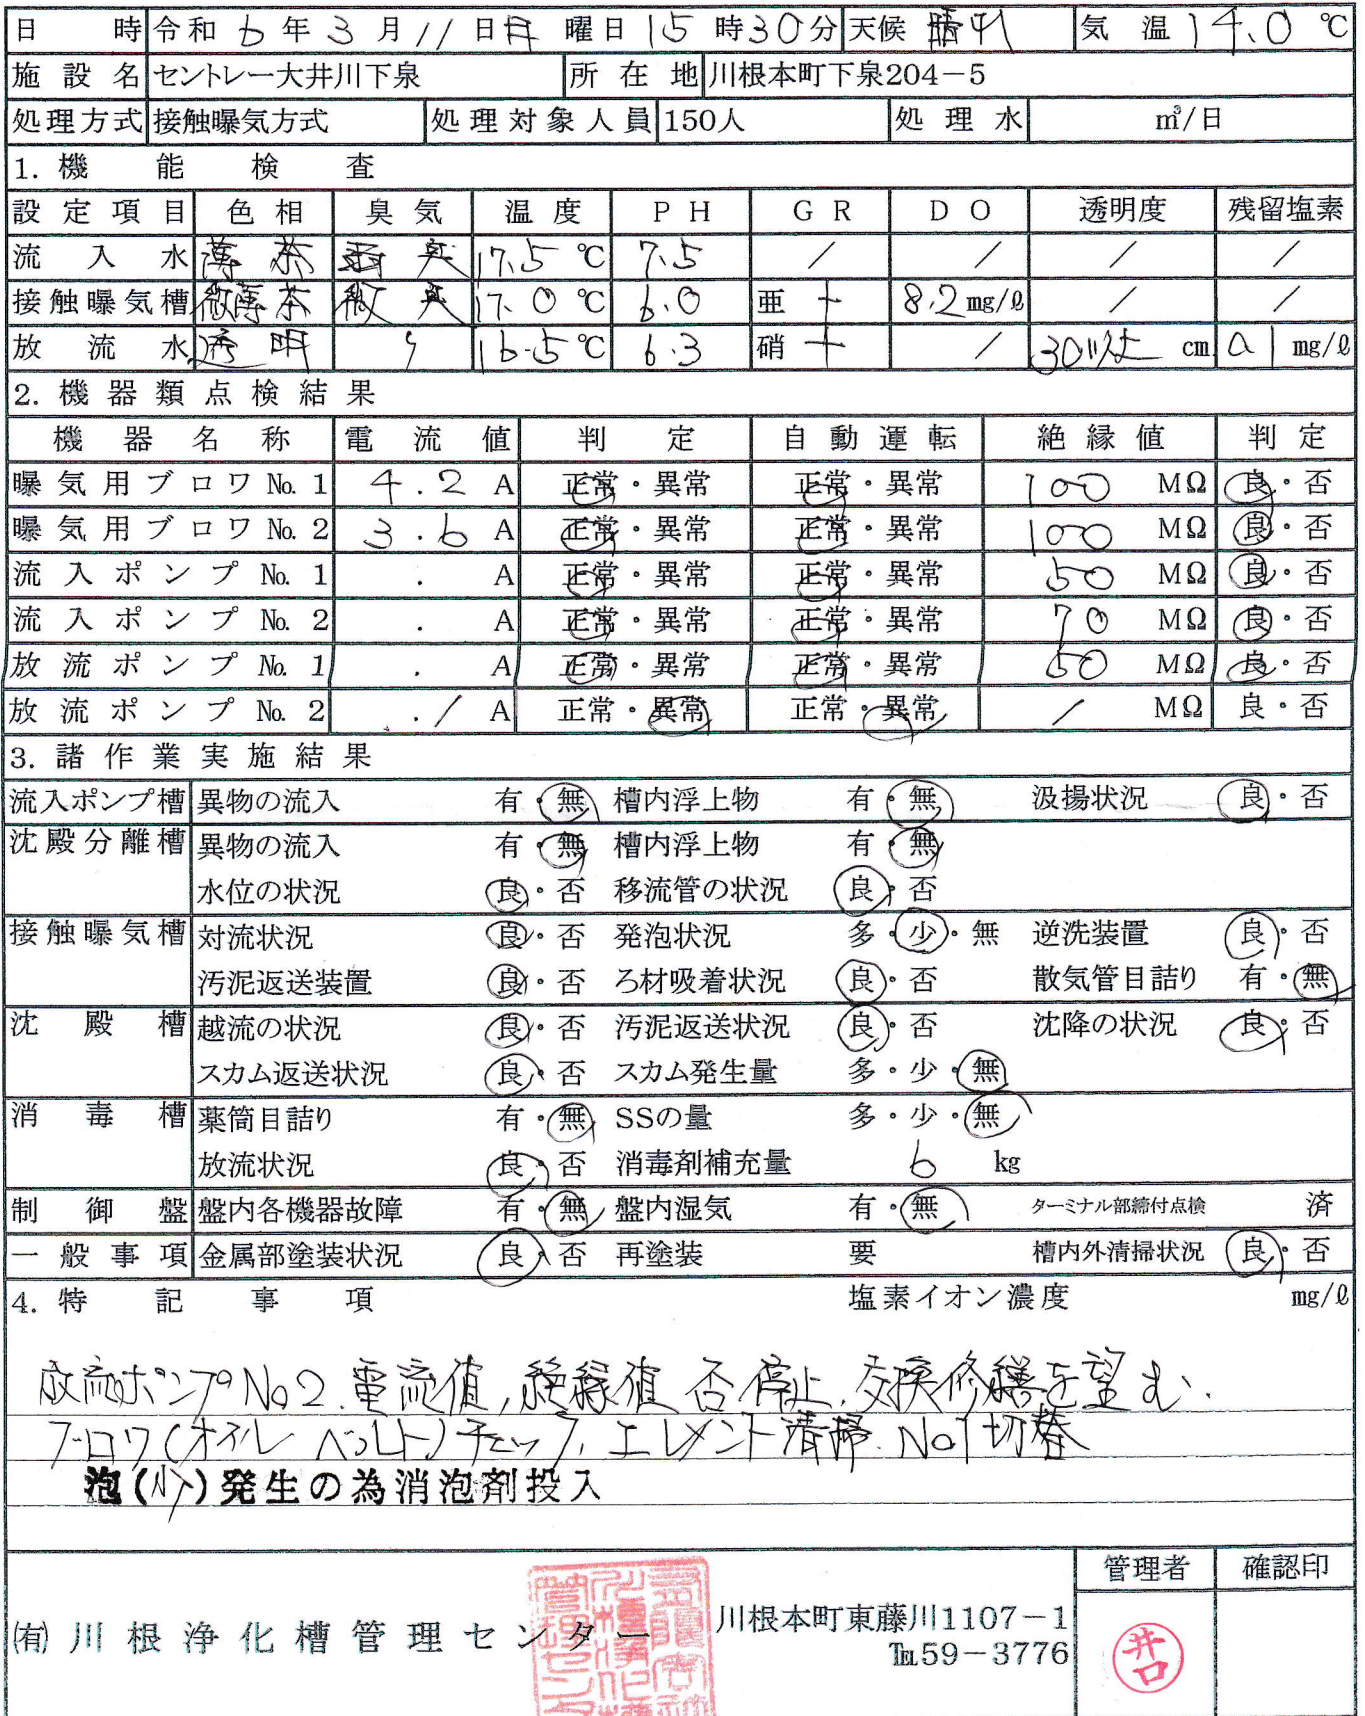 日 時 令和 6 年 3 月 11 日 月 曜日 15 時 30 分 天候 晴れ 気 温 14.0 ℃
施 設 名 セントレー大井川下泉 所 在 地 川根本町下泉204-5
処理方式 接触曝気方式 処理対象人員 150人 処 理 水 ㎥/日
1. 機 能 検 査
設 定 項 目 色 相 臭 気 温 度 P H G R D O 透明度 残留塩素
流 入 水 薄 茶 弱 臭 17.5 ℃ 7.5 / / / /
接触曝気槽 微薄茶 微 臭 17.0 ℃ 6.0 亜 + 8.2 mg/ℓ / /
放 流 水 透 明 〃 16.5 ℃ 6.3 硝 + / 30以上 cm 0.1 mg/ℓ
2. 機 器 類 点 検 結 果
機 器 名 称 電 流 値 判 定 自 動 運 転 絶 縁 値 判 定
曝 気 用 ブ ロ ワ No. 1 4.2 A 正常・異常 正常・異常 100 MΩ 良・否
曝 気 用 ブ ロ ワ No. 2 3.6 A 正常・異常 正常・異常 100 MΩ 良・否
流 入 ポ ン プ No. 1 . A 正常・異常 正常・異常 50 MΩ 良・否
流 入 ポ ン プ No. 2 . A 正常・異常 正常・異常 70 MΩ 良・否
放 流 ポ ン プ No. 1 . A 正常・異常 正常・異常 50 MΩ 良・否
放 流 ポ ン プ No. 2 . / A 正常・異常 正常・異常 / MΩ 良・否
3. 諸 作 業 実 施 結 果
流入ポンプ槽 異物の流入 有・無 槽内浮上物 有・無 汲揚状況 良・否
沈殿分離槽 異物の流入 有・無 槽内浮上物 有・無
水位の状況 良・否 移流管の状況 良・否
接触曝気槽 対流状況 良・否 発泡状況 多・少・無 逆洗装置 良・否
汚泥返送装置 良・否 ろ材吸着状況 良・否 散気管目詰り 有・無
沈 殿 槽 越流の状況 良・否 汚泥返送状況 良・否 沈降の状況 良・否
スカム返送状況 良・否 スカム発生量 多・少・無
消 毒 槽 薬筒目詰り 有・無 SSの量 多・少・無
放流状況 良・否 消毒剤補充量 6 kg
制 御 盤 盤内各機器故障 有・無 盤内湿気 有・無 ターミナル部締付点検 済
一 般 事 項 金属部塗装状況 良・否 再塗装 要 槽内外清掃状況 良・否
4. 特 記 事 項 塩素イオン濃度 mg/ℓ
放流ポンプNo2.電流値,絶縁値 否 停止.交換修繕を望む.
ブロワ(オイル ベルト)チェック,エレメント清掃.No1切替
泡(少)発生の為消泡剤投入
管理者 確認印
㈲ 川 根 浄 化 槽 管 理 セ ン タ ー
川根本町東藤川1107-1
℡59-3776
井口